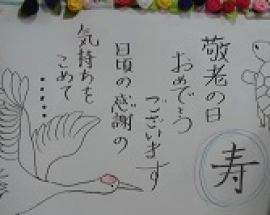 敬老の日
おめでとう
ございます
日頃の感謝の
気持ちを
こめて
・・・・・
寿